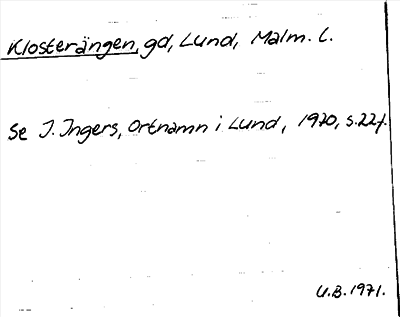 Klosterängen, gd, Lund, Malm. l.
Se J. Ingers, Ortnamn i Lund, 1970, s. 22f.
U.B. 1971.